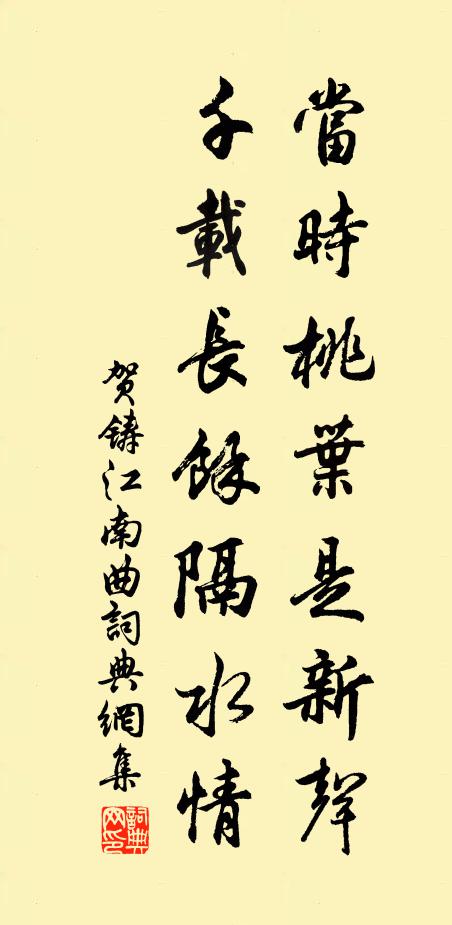 當時桃葉是新聲
千載長餘隔水情
贺鑄江南曲詞典網集
詞典网印